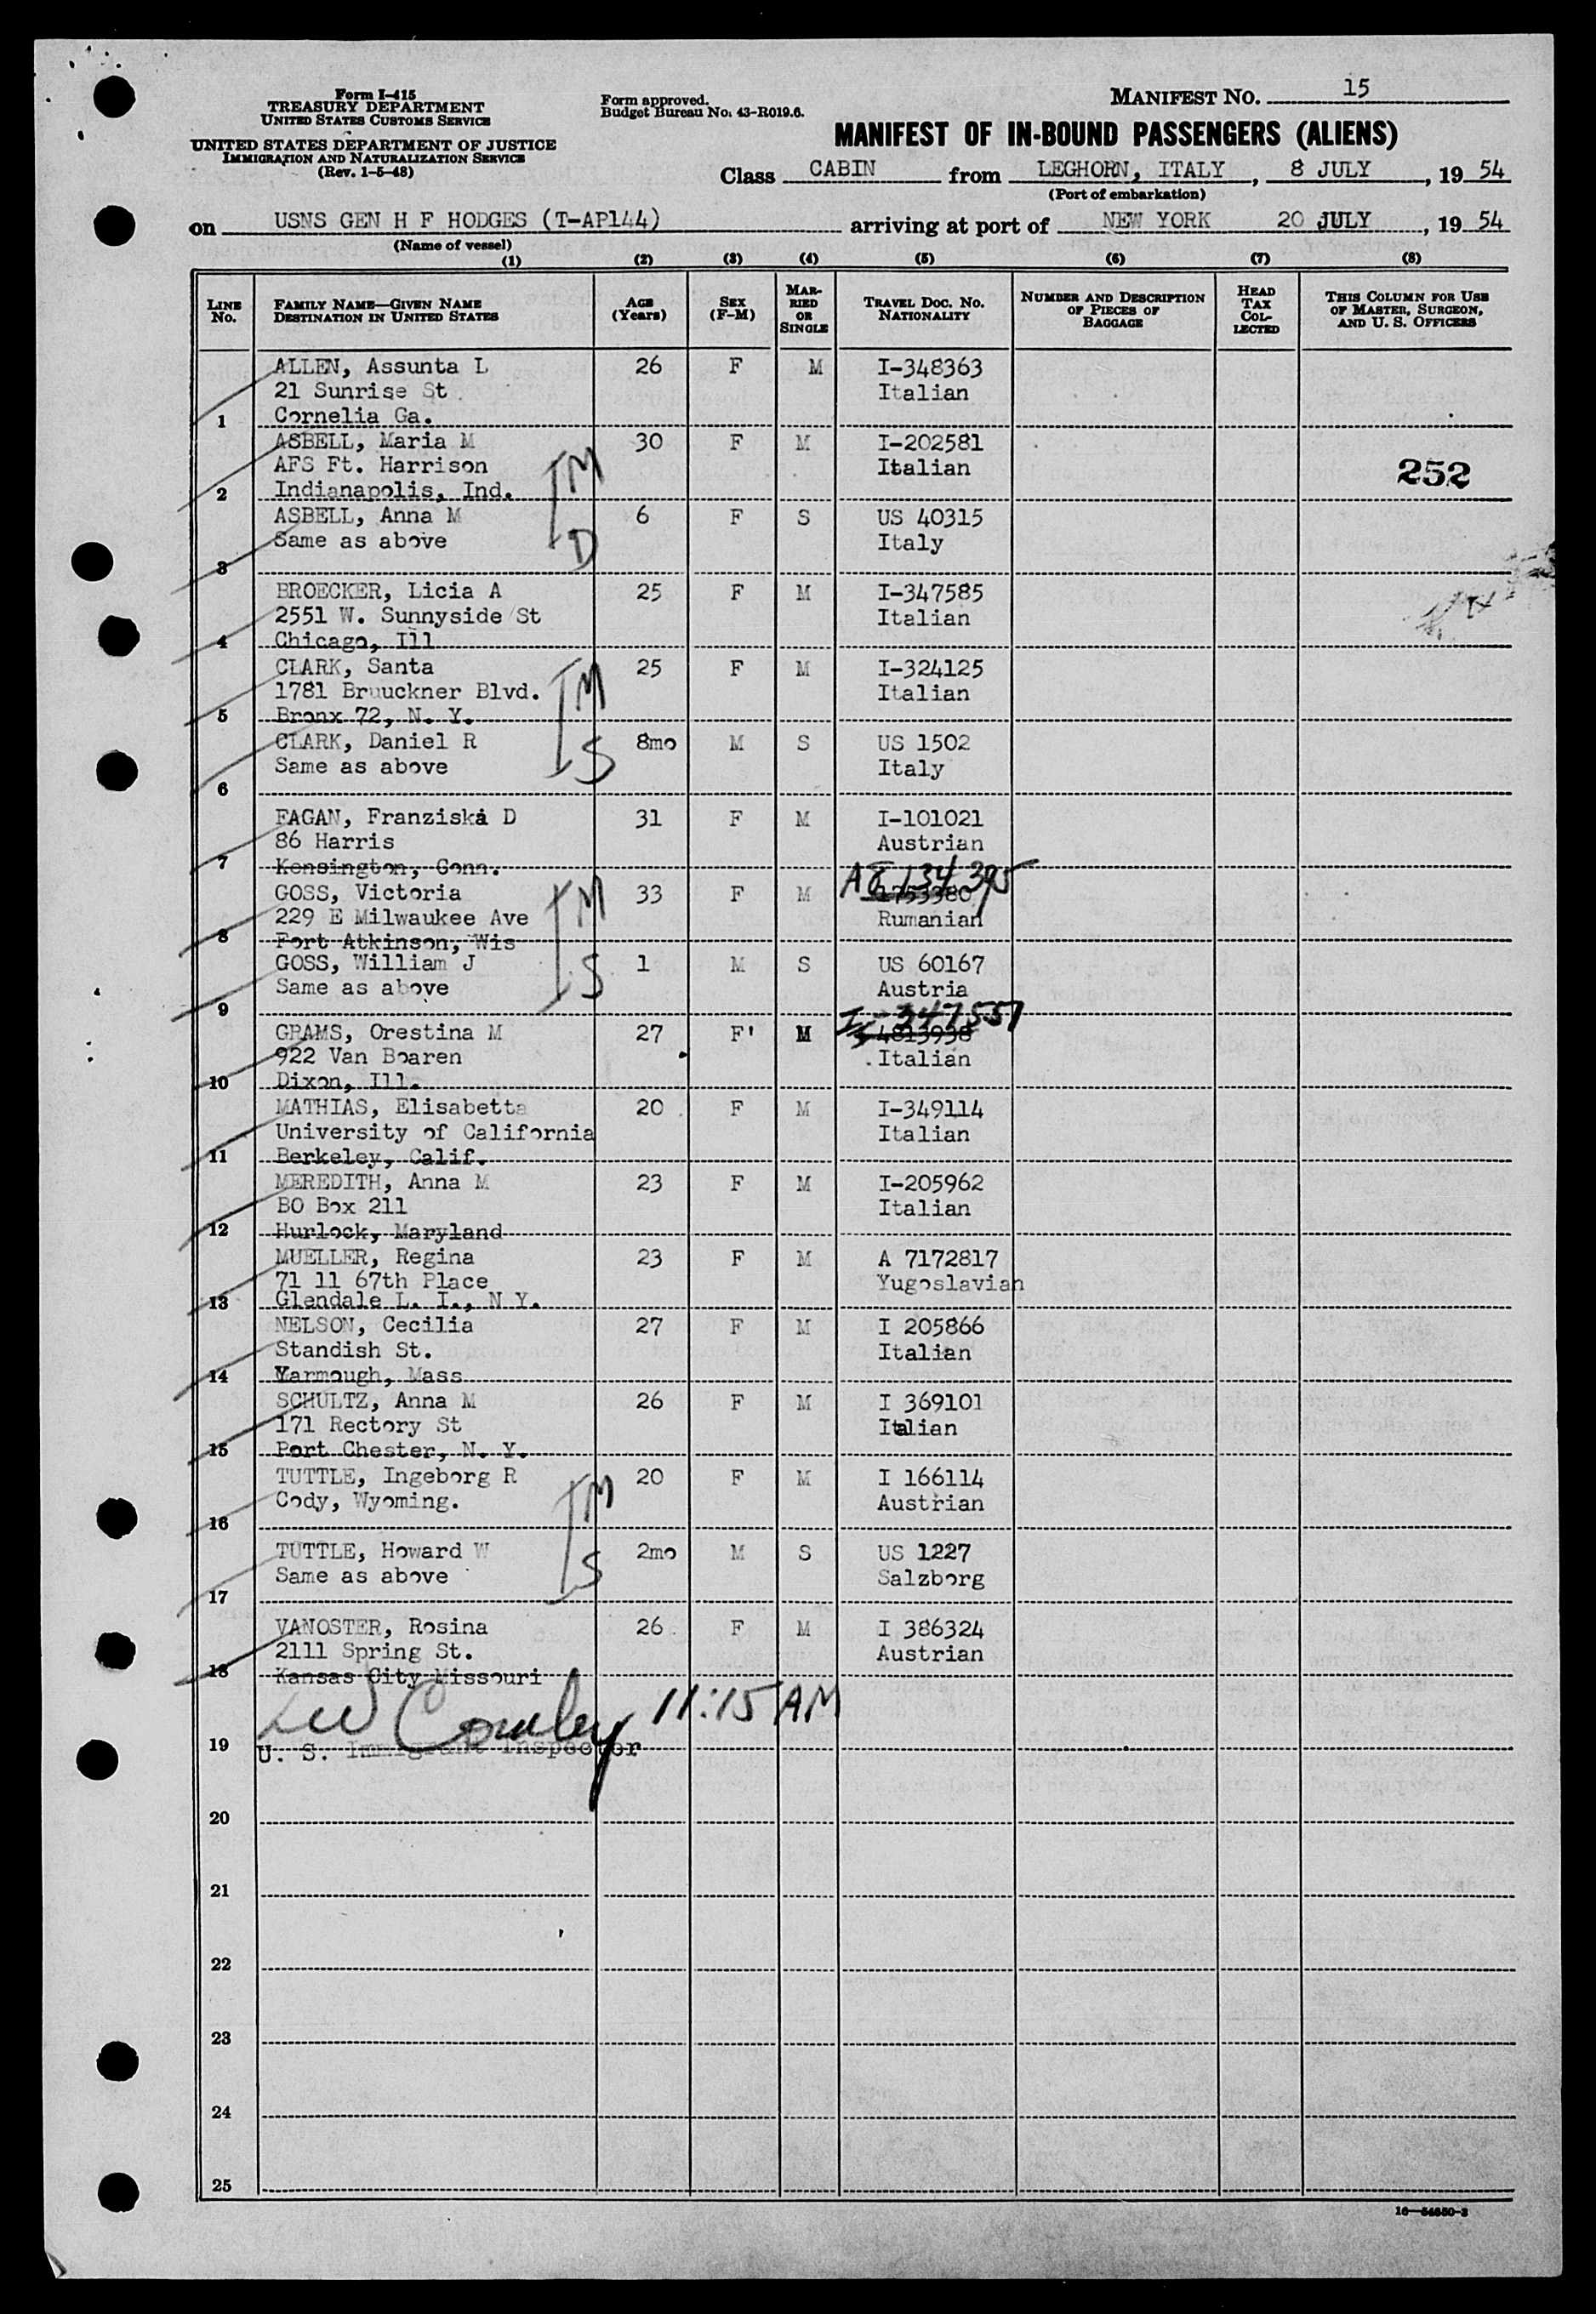 Form I-415
TREASURY DEPARTMENT
UNITED STATES CUSTOMS SERVICE
UNITED STATES DEPARTMENT OF JUSTICE
IMMIGRATION AND NATURALIZATION SERVICE
(Rev. 1-5-48)
Form approved.
Budget Bureau No. 43-R019.6.
MANIFEST NO. 15
MANIFEST OF IN-BOUND PASSENGERS (ALIENS)
Class CABIN from LEGHORN, ITALY, 8 JULY, 1954
(Port of embarkation)
on USNS GEN H F HODGES (T-AP144) arriving at port of NEW YORK 20 JULY, 1954
(Name of vessel)
(1) (2) (3) (4) (5) (6) (7) (8)
LINE No. FAMILY NAME—GIVEN NAME DESTINATION IN UNITED STATES AGE (Years) SEX (F-M) MARRIED OR SINGLE TRAVEL DOC. NO. NATIONALITY NUMBER AND DESCRIPTION OF PIECES OF BAGGAGE HEAD TAX COLLECTED THIS COLUMN FOR USE OF MASTER, SURGEON, AND U. S. OFFICERS
ALLEN, Assunta L 26 F M I-348363
21 Sunrise St Italian
1 Cornelia Ga.
ASBELL, Maria M 30 F M I-202581
AFS Ft. Harrison M Italian 252
2 Indianapolis, Ind.
ASBELL, Anna M 6 F S US 40315
Same as above D Italy
3
BROECKER, Licia A 25 F M I-347585
2551 W. Sunnyside St Italian
4 Chicago, Ill
CLARK, Santa 25 F M I-324125
1781 Bruuckner Blvd. M Italian
5 Bronx 72, N. Y.
CLARK, Daniel R 8mo M S US 1502
Same as above S Italy
6
FAGAN, Franziska D 31 F M I-101021
86 Harris Austrian
7 Kensington, Conn.
A8 134 395
GOSS, Victoria M 33 F M
229 E Milwaukee Ave Rumanian
8 Fort Atkinson, Wis
GOSS, William J 1 M S US 60167
Same as above S Austria
9
I-347557
GRAMS, Orestina M 27 F' M 4813938
922 Van Boaren Italian
10 Dixon, Ill.
MATHIAS, Elisabetta 20 F M I-349114
University of California Italian
11 Berkeley, Calif.
MEREDITH, Anna M 23 F M I-205962
BO Box 211 Italian
12 Hurlock, Maryland
MUELLER, Regina 23 F M A 7172817
71 11 67th Place Yugoslavian
13 Glendale L. I., N Y.
NELSON, Cecilia 27 F M I 205866
Standish St. Italian
14 Yarmough, Mass
SCHULTZ, Anna M 26 F M I 369101
171 Rectory St Italian
15 Port Chester, N. Y.
TUTTLE, Ingeborg R M 20 F M I 166114
Cody, Wyoming. Austrian
16
TUTTLE, Howard W 2mo M S US 1227
Same as above S Salzborg
17
VANOSTER, Rosina 26 F M I 386324
2111 Spring St. Austrian
18 Kansas City Missouri
11:15 AM
19 U. S. Immigrant Inspector
20
21
22
23
24
25